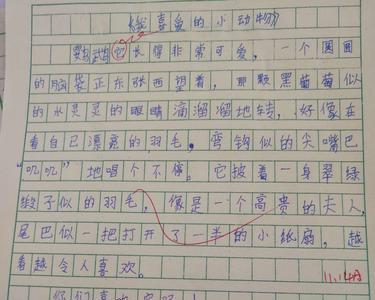 《我喜爱的小动物》
鹦鹉它长得非常可爱，一个圆圆
的脑袋正东张西望着，那颗黑葡萄似
的水灵灵的眼睛滴溜溜地转，好像在
看自已漂亮的羽毛，弯钩似的尖嘴巴
“叽叽”地唱个不停。它披着一身翠绿
缎子似的羽毛，像是一个高贵的夫人，
尾巴似一把打开了一半的小纸扇，越
看越令人喜欢。
11.14日